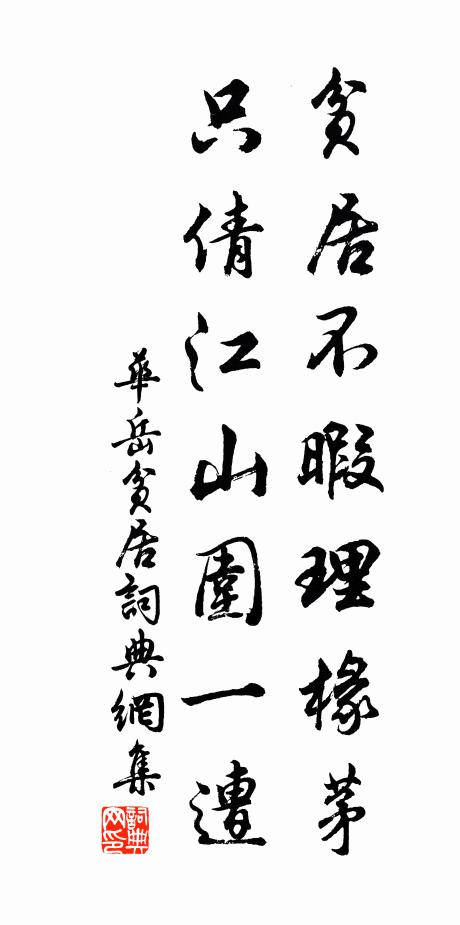 貧居不暇理椽茅
只倩江山圍一遭
華岳貧居詞典網集
詞典
网印